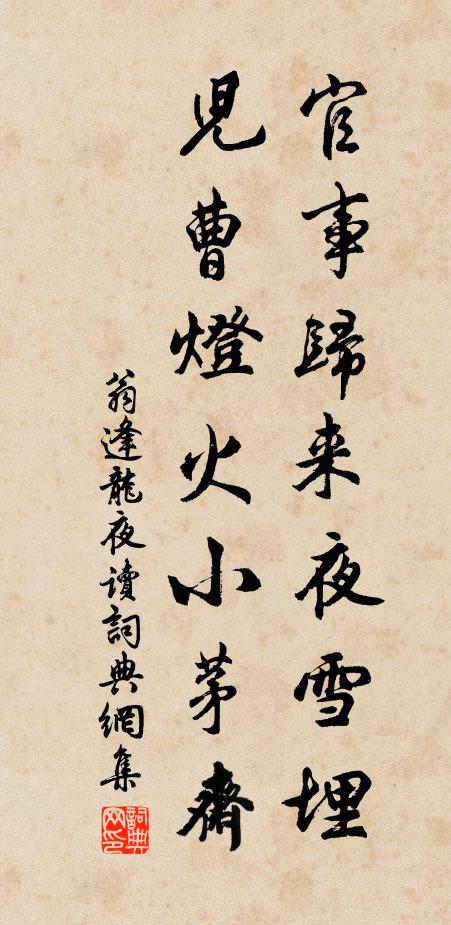 官事歸来夜雪埋
兒曹燈火小茅齋
翁逢龍夜讀詞典網集
詞典網印